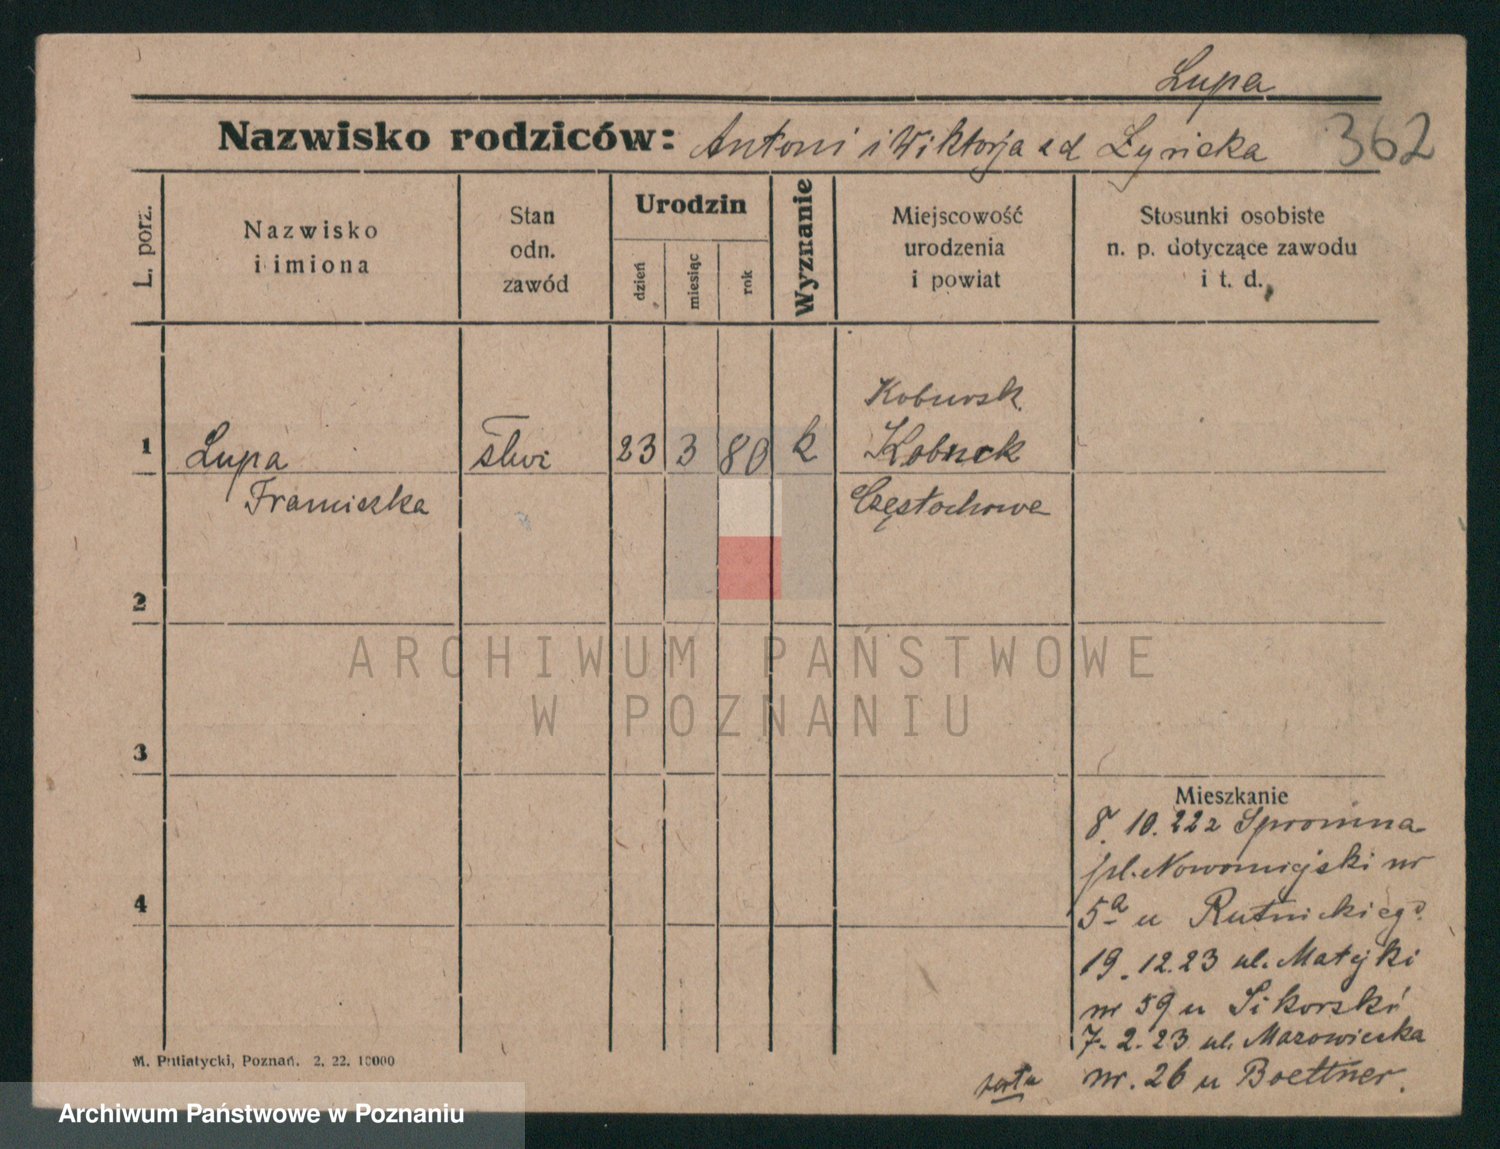 Lupa
Nazwisko rodziców: Antoni i Wiktorja z d Żyricka 362
L. porz.
Nazwisko
i imiona
Stan
odn.
zawód
Urodzin
dzień
miesiąc
rok
Wyznanie
Miejscowość
urodzenia
i powiat
Stosunki osobiste
n. p. dotyczące zawodu
i t. d.
Kobursk.
1 Lupa 23 3 80 k Kobuck
Franciszka Częstochowa
2
3
4
Mieszkanie
8. 10. 22 z
pl. Nowomiejski nr
5a u Rutnickiego
19. 12. 23 ul. Matejki
nr 59 u Sikorski
7. 2. 23 ul. Mazowiecka
nr. 26 u Boettner.
verte
M. Putiatycki, Poznań. 2. 22. 10000
ARCHIWUM PAŃSTWOWE
W POZNANIU
Archiwum Państwowe w Poznaniu